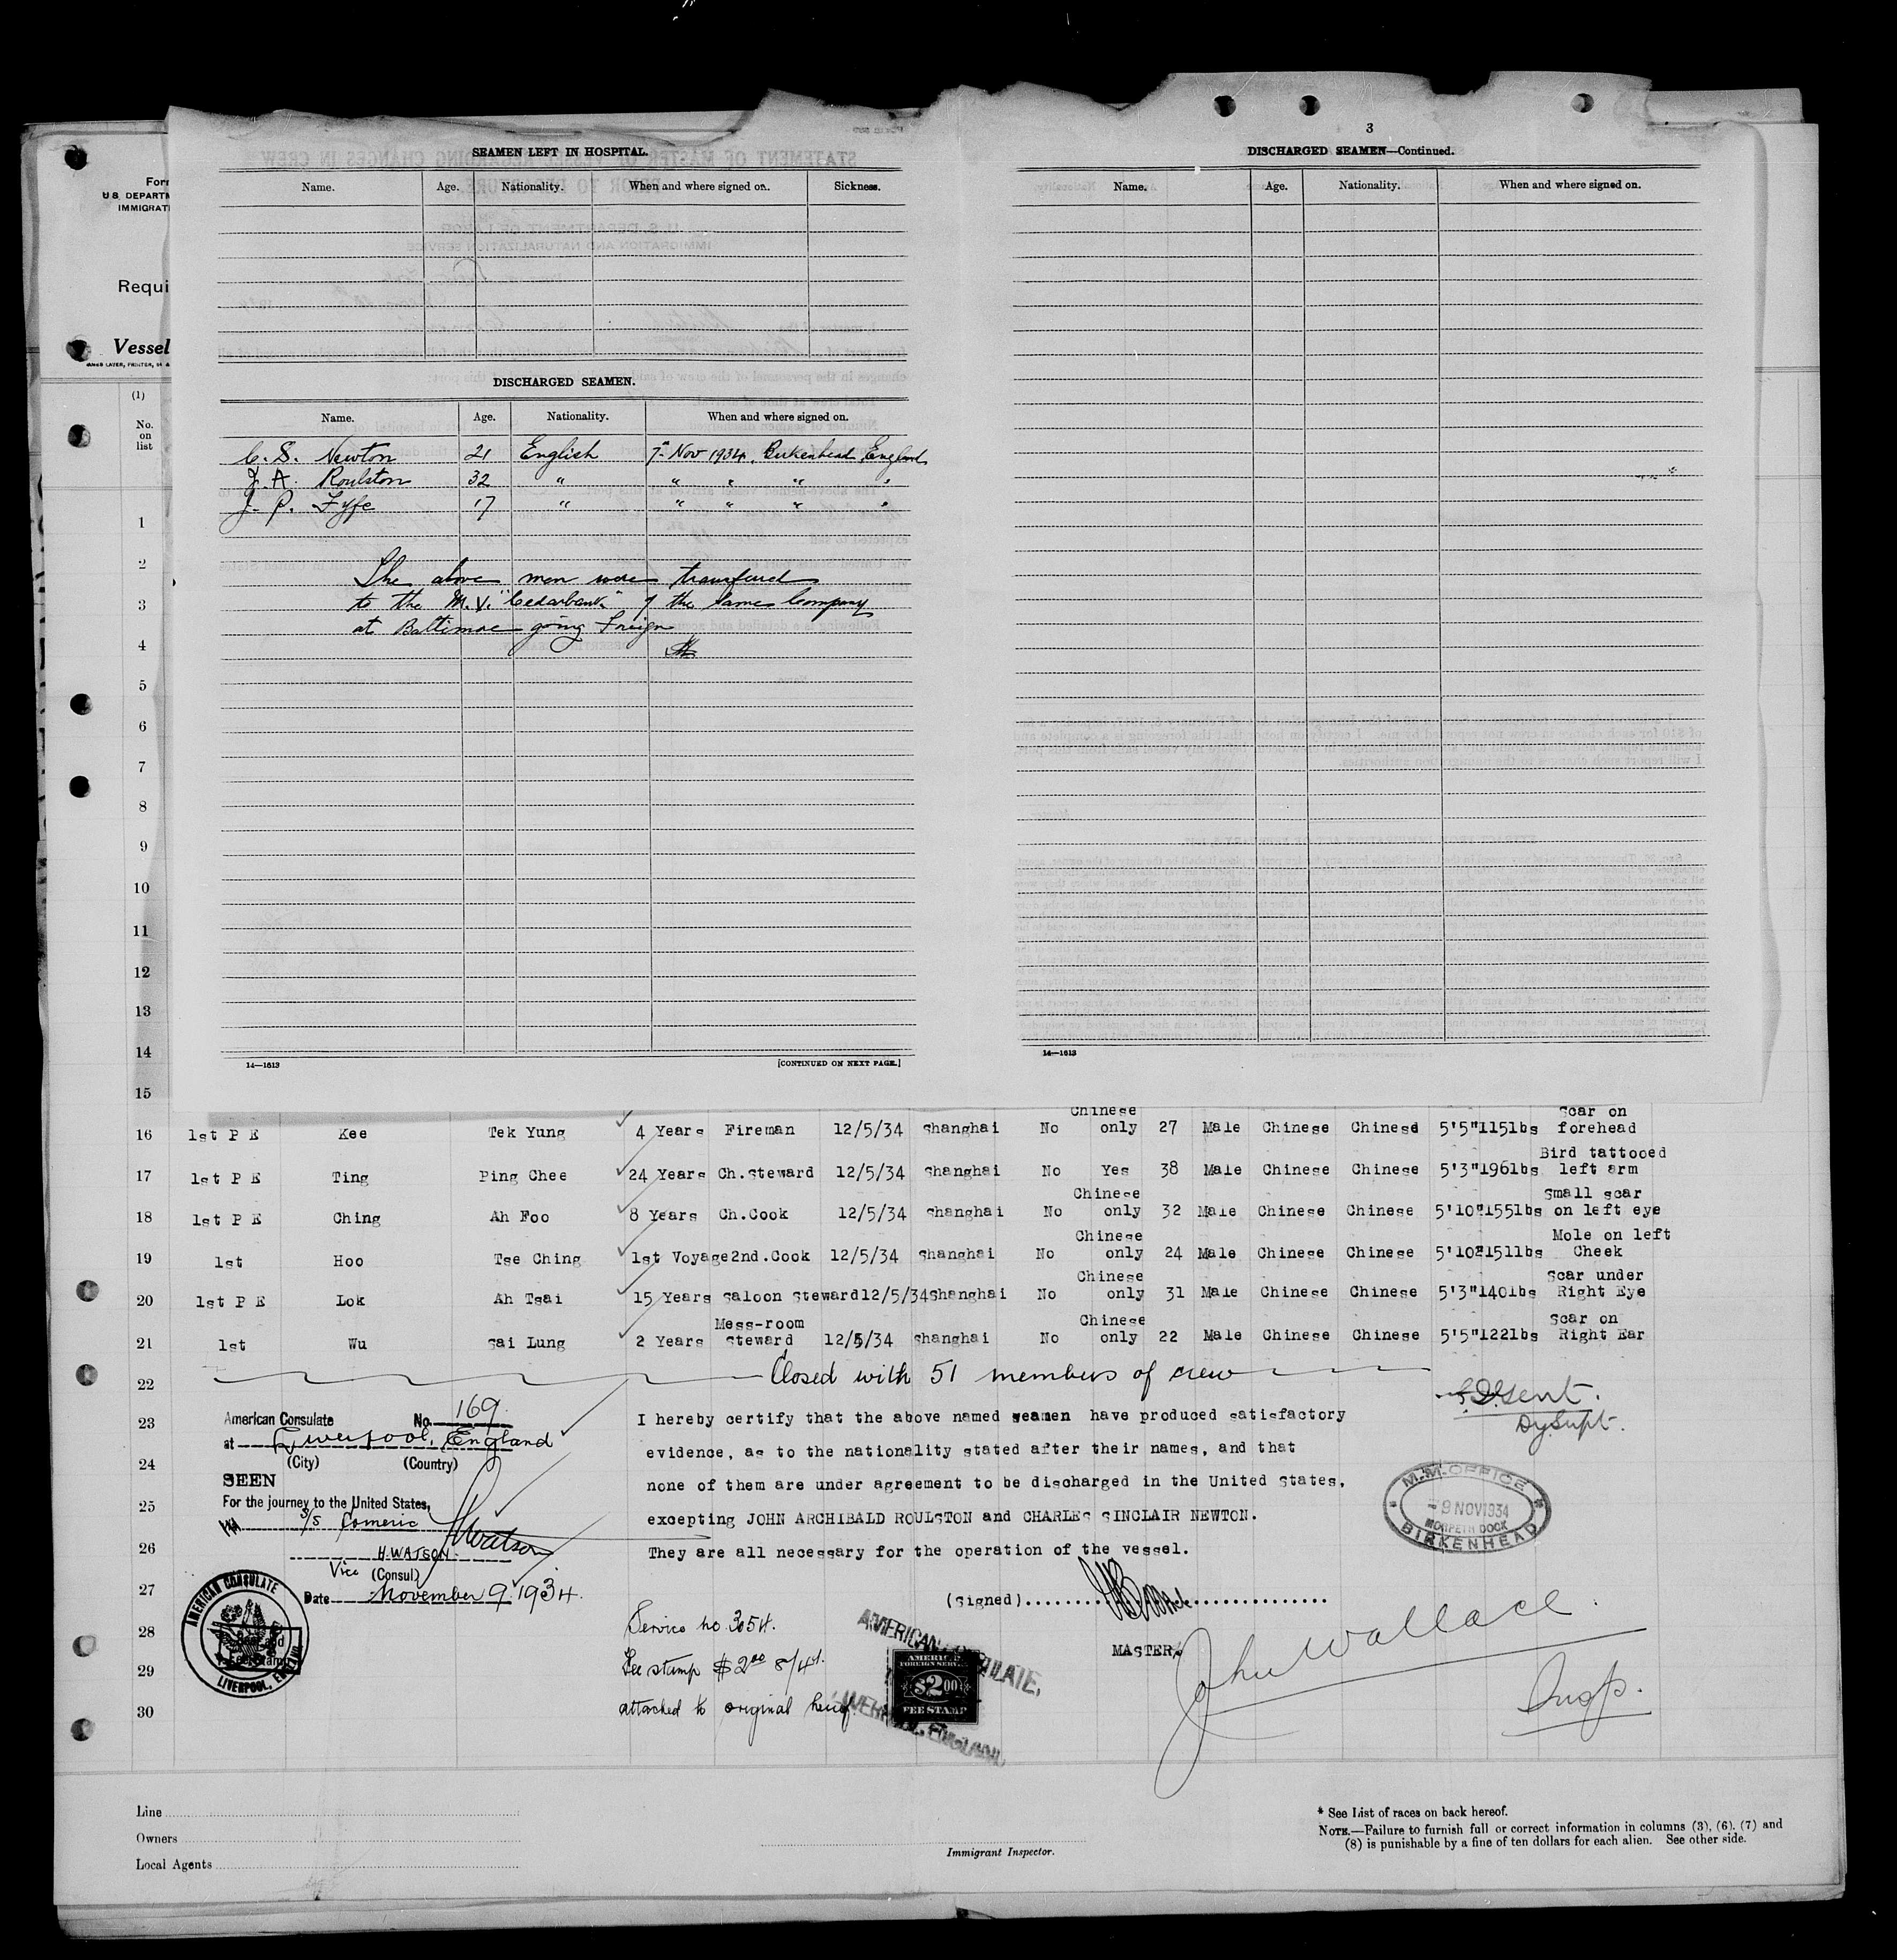 3
SEAMEN LEFT IN HOSPITAL.
Name. Age. Nationality. When and where signed on. Sickness.
DISCHARGED SEAMEN.
Name. Age. Nationality. When and where signed on.
C. S. Newton 21 English 7th Nov 1934, Birkenhead, England
J. A. Roulston 32 " " " " "
J. P. Fyfe 17 " " " " "
The above men were transfered
to the M.V. "Cedarbank" of the same Company
at Baltimore going Foreign
14—1613 [CONTINUED ON NEXT PAGE.]
DISCHARGED SEAMEN—Continued.
Name. Age. Nationality. When and where signed on.
14—1613
Form
U.S. DEPARTM
IMMIGRATI
Requi
Vessel
(1)
No.
on
list
1
2
3
4
5
6
7
8
9
10
11
12
13
14
15
16 1st P E Kee Tek Yung 4 Years Fireman 12/5/34 Shanghai No Chinese only 27 Male Chinese Chinese 5'5" 115lbs Scar on forehead
17 1st P E Ting Ping Chee 24 Years Ch.Steward 12/5/34 Shanghai No Yes 38 Male Chinese Chinese 5'3" 196lbs Bird tattooed left arm
18 1st P E Ching Ah Foo 8 Years Ch.Cook 12/5/34 Shanghai No Chinese only 32 Male Chinese Chinese 5'10" 155lbs Small scar on left eye
19 1st Hoo Tse Ching 1st Voyage 2nd.Cook 12/5/34 Shanghai No Chinese only 24 Male Chinese Chinese 5'10" 151lbs Mole on left Cheek
20 1st P E Lok Ah Tsai 15 Years Saloon Steward 12/5/34 Shanghai No Chinese only 31 Male Chinese Chinese 5'3" 140lbs Scar under Right Eye
21 1st Wu Sai Lung 2 Years Mess-room Steward 12/5/34 Shanghai No Chinese only 22 Male Chinese Chinese 5'5" 122lbs Scar on Right Ear
22 Closed with 51 members of crew
23
24
25
26
27
28
29
30
American Consulate No. 169.
at Liverpool, England
(City) (Country)
SEEN
For the journey to the United States,
S/S Comeric
H. WATSON
Vice (Consul)
Date November 9. 1934.
AMERICAN CONSULATE
LIVERPOOL, ENGLAND
I hereby certify that the above named seamen have produced satisfactory
evidence, as to the nationality stated after their names, and that
none of them are under agreement to be discharged in the United States,
excepting JOHN ARCHIBALD ROULSTON and CHARLES SINCLAIR NEWTON.
They are all necessary for the operation of the vessel.
(Signed)
MASTER.
Dy Supt.
M.M. OFFICE
9 NOV 1934
MORPETH DOCK
BIRKENHEAD
Service no. 3654.
Fee stamp $2.00 8/4d.
attached to original hereof.
AMERICAN CONSULATE,
LIVERPOOL, ENGLAND.
AMERICAN
FOREIGN SERVICE
$2.00
FEE STAMP
John Wallace
Insp.
Line
Owners
Local Agents
Immigrant Inspector.
* See List of races on back hereof.
NOTE.—Failure to furnish full or correct information in columns (3), (6), (7) and
(8) is punishable by a fine of ten dollars for each alien. See other side.